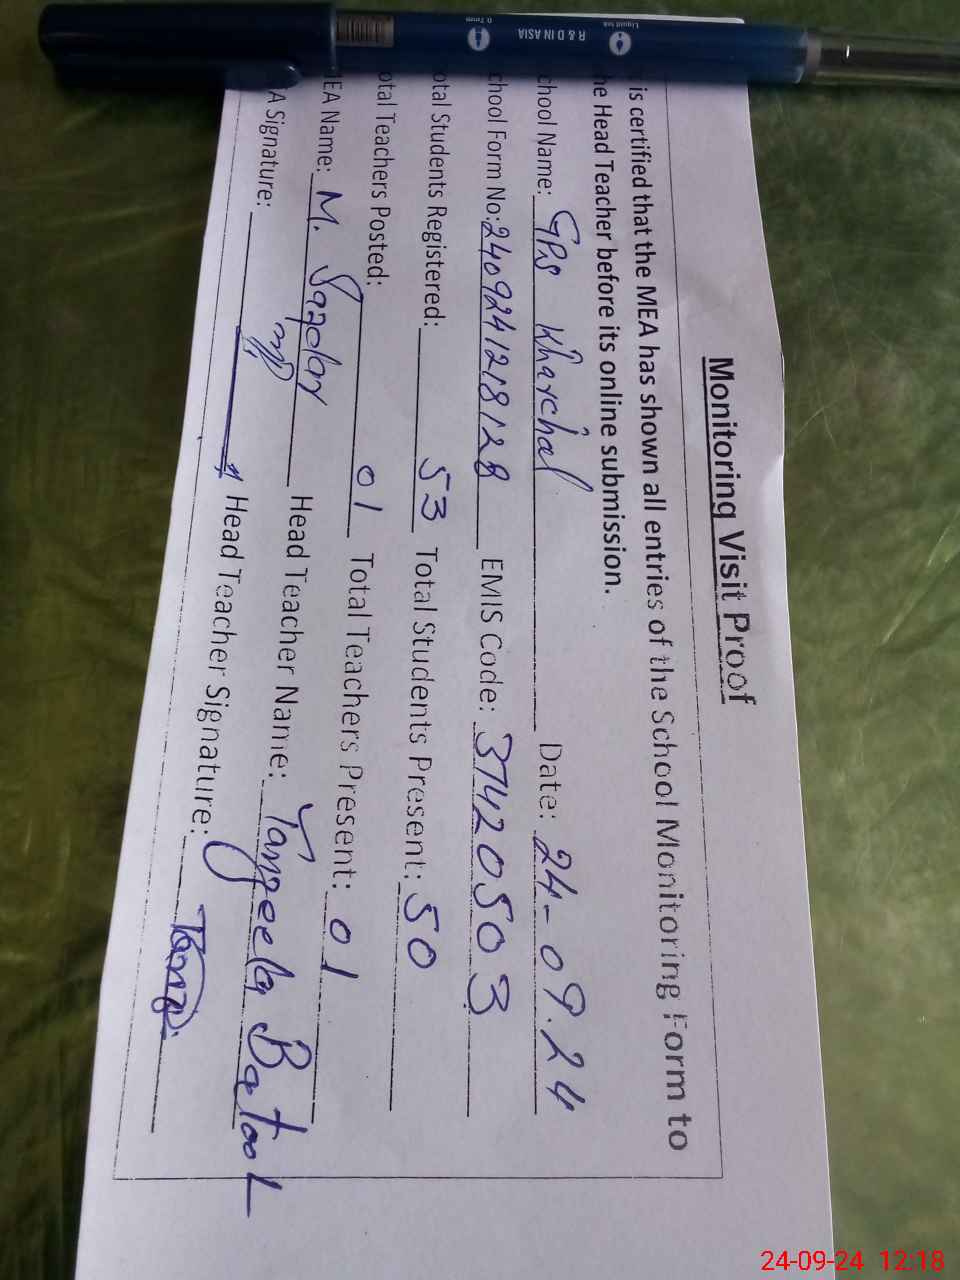 Monitoring Visit Proof
is certified that the MEA has shown all entries of the School Monitoring Form to
he Head Teacher before its online submission.
chool Name: GPS Kharchal Date: 24-09.24
chool Form No: 2409241218128 EMIS Code: 37420503
otal Students Registered: 53 Total Students Present: 50
otal Teachers Posted: 01 Total Teachers Present: 01
EA Name: M. Safdar Head Teacher Name: Tanzeela Batool
A Signature: Head Teacher Signature:
R & D IN ASIA
Liquid Ink
0.7mm
24-09-24 12:18